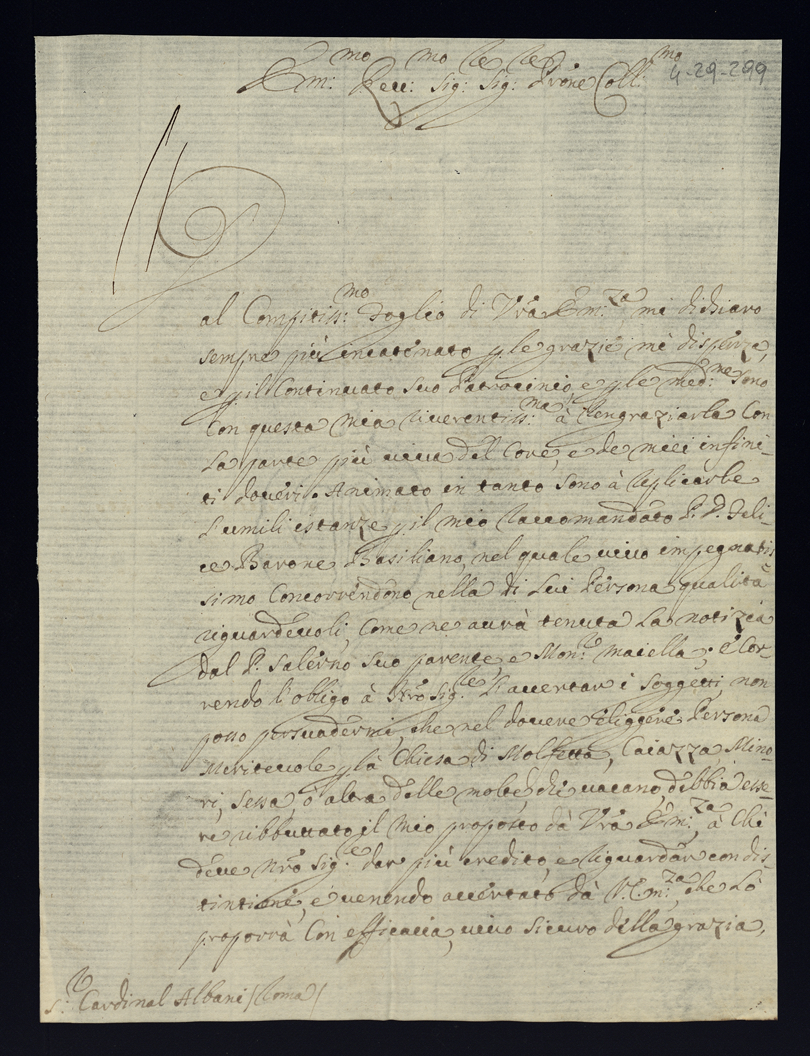 Em:mo Reu:mo Sig:re Sig:re Prone Coll:mo
4-29-299
al Compitiss:mo foglio di Vrã Em:za mi dichiaro
sempre più incatenato p le grazie mi dispenza,
e p il Continuato suo Patrocinio, e p le med:me sono
Con questa mia riuerentiss:ma à Rengraziarla Con
la parte più uiua del Core, e de miei infini-
ti doueri. Animato in tanto sono à replicarle
l'umili istanze p il mio raccomandato P. D. Feli-
ce Barone Basiliano, nel quale uiuo inpegnatis-
simo Concorrendono nella di Lui Persona qualità
riguardeuoli, Come ne aurà tenuta la notizia
dal P. Salerno suo parente e Mon:r Maiella; e Cor-
rendo l'obligo à Nrõ Sig:re d'accertar i soggetti, non
posso persuadermi, che nel douere eliggere Persona
Meriteuole p la Chiesa di Molfetta, Caiazza, Mino-
ri, Sessa, ò altra delle molte, chi uacano, debbia esse-
re ributtato il mio proposto dà Vrã Em:za, à Chi
deue Nrõ Sig:e dar più credito, e riguardar con dis-
tintione, e uenendo accertato dà V. Em:za, che lo
proporrà Con efficacia, uiuo sicuro della grazia,
S:r Cardinal Albani /Roma/